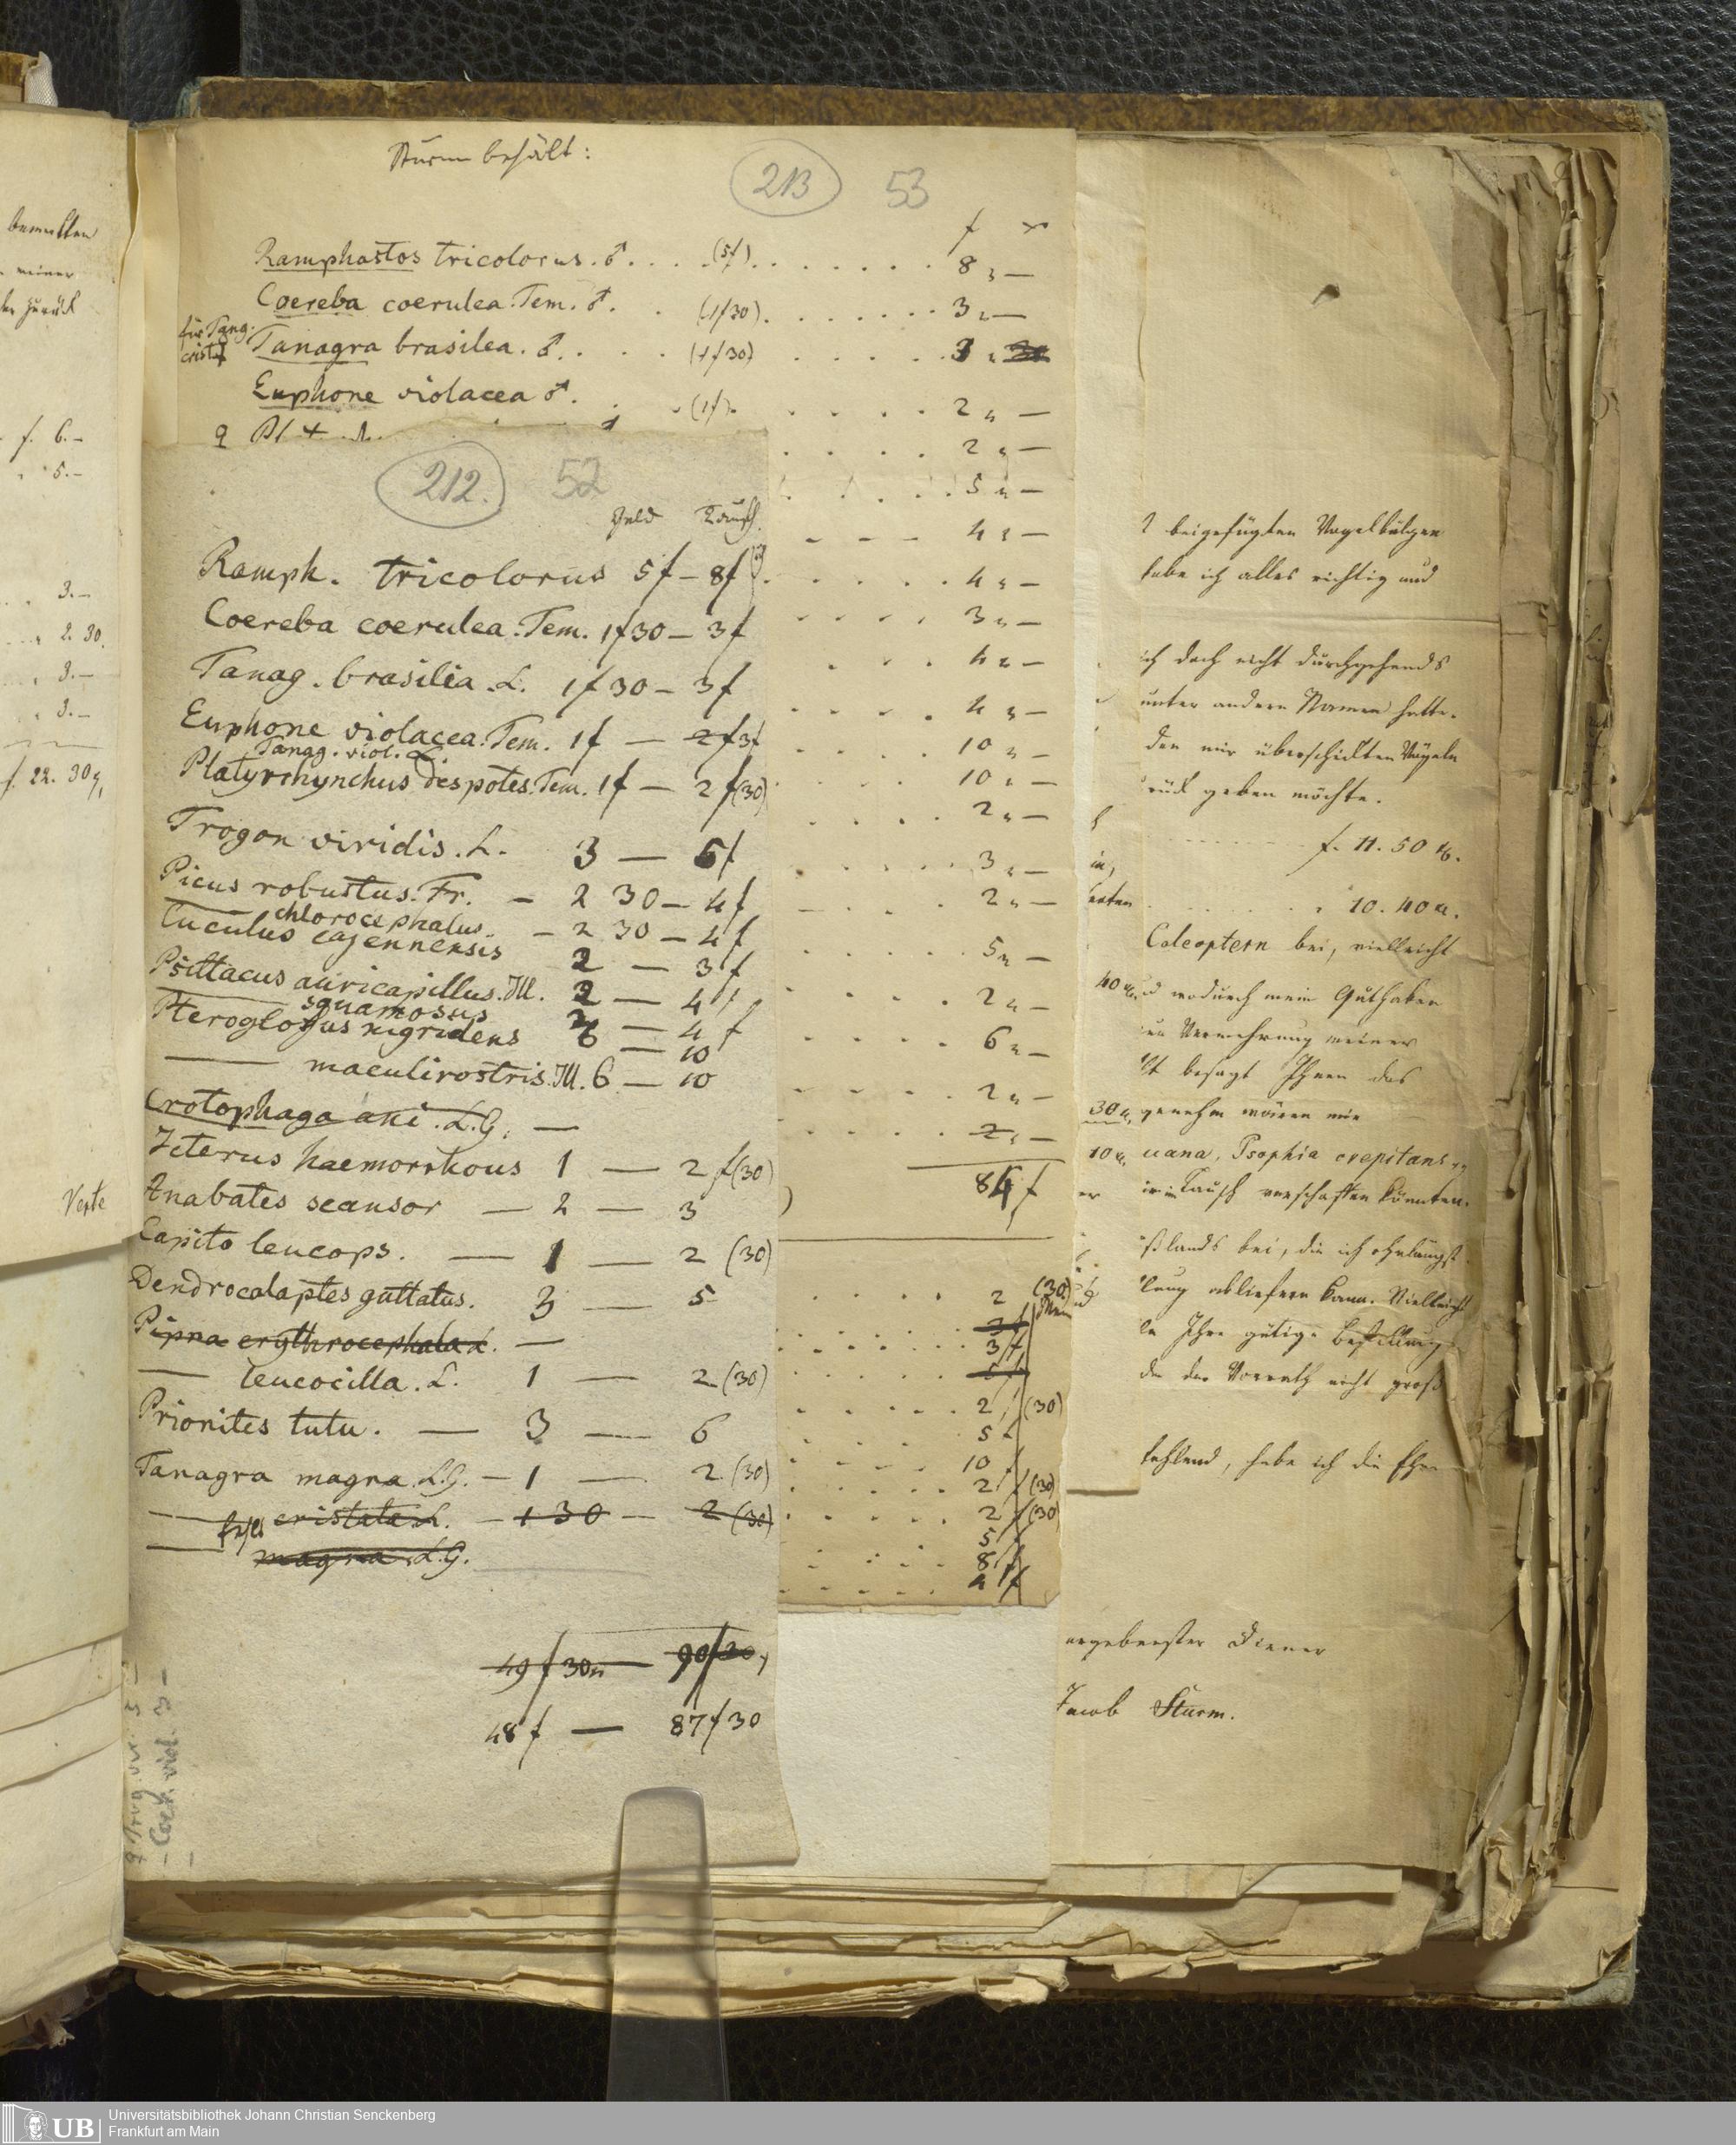 bemerkten
meiner
zurück
f. 6.–
5.–
3.–
2. 30.
3.–
3.–
f. 22. 30
Verte
Sturm behält:
213 53
f x
Ramphastos tricolorus. ♂. . . . (5f) . . . . . . . 8 „ —
Coereba coerulea. Tem. ♂. . (1f30). . . . . . . 3 „ —
für Tang. crist.
Tanagra brasilea. ♂. . . . . (1f30) . . . . . . 3 „
Euphone violacea ♂. . . (1f). . . . . . 2 „ —
. . . . 2 „ —
. . . . 5 „ —
- - - 4 „ —
. . . . . 4 „ —
. . . . 3 „ —
. . . . 4 „ —
. . . . 4 „ —
. . . . 10 „ —
. . . . 10 „ —
. . . . 2 „ —
. . . . 3 „ —
. . . . 2 „ —
. . . . 5 „ —
. . . . 2 „ —
. . . . 6 „ —
. . . . 2 „ —
. . . . 2 „ —
84 f
212. 52
Geld Tausch.
Ramph. tricolorus 5f – 8f
Coereba coerulea. Tem. 1f30 – 3f
Tanag. brasilia. L. 1f30 – 3f
Euphone violacea. Tem. 1f — 2f 3f
Tanag. viol. L.
Platyrhynchus despotes. Tem. 1f — 2f(30)
Trogon viridis. L. 3 — 5f
Picus robustus. Fr. – 2 30 – 4f
—— chlorocephalus. – 2 30 – 4f
Cuculus cajennensis 2 — 3f
Psittacus auricapillus. Ill. 2 — 4f
—— squamosus 2 — 4f
Pteroglossus nigridens 6 — 10
—— maculirostris. Ill. 6 — 10
Crotophaga ani. L.G. —
Icterus haemorrhous 1 — 2f(30)
Anabates scansor — 2 — 3
Capito leucops. — 1 — 2 (30)
Dendrocolaptes guttatus. 3 — 5
Pipra erythrocephala L. —
—— leucocilla. L. 1 — 2 (30)
Prionites tutu. — 3 — 6
Tanagra magna. L.G. – 1 — 2 (30)
—— cristata L. – 1 30 – 2 (30)
—— magna L.G.
49f 30 — 90f30
48f — 87f30
. . . . . 2 (30)
3f
3f
2 (30)
5f
10
2f (30)
2f (30)
5f
8f
4f
beigefügten Vogelbälgen
habe ich alles richtig und
ich doch nicht durchgehends
unter andern Namen hatte.
den mir überschickten Vögeln
zurück geben möchte.
f. 11. 50 x.
„ 10. 40 x.
Coleoptern bei, vielleicht
40 x. wodurch mein Guthaben
Vermehrung meiner
besagt Ihnen das
30 x. genehm wären mir
10 x. Psophia crepitans
im Tausch verschaffen könnten.
bei, die ich ohnlängst
abliefern kann. Vielleicht
Ihre gütige Bestellung
da der Vorrath nicht groß
fehlend, habe ich die Ehre
ergebenster Diener
Jacob Sturm.
UB
Universitätsbibliothek Johann Christian Senckenberg
Frankfurt am Main